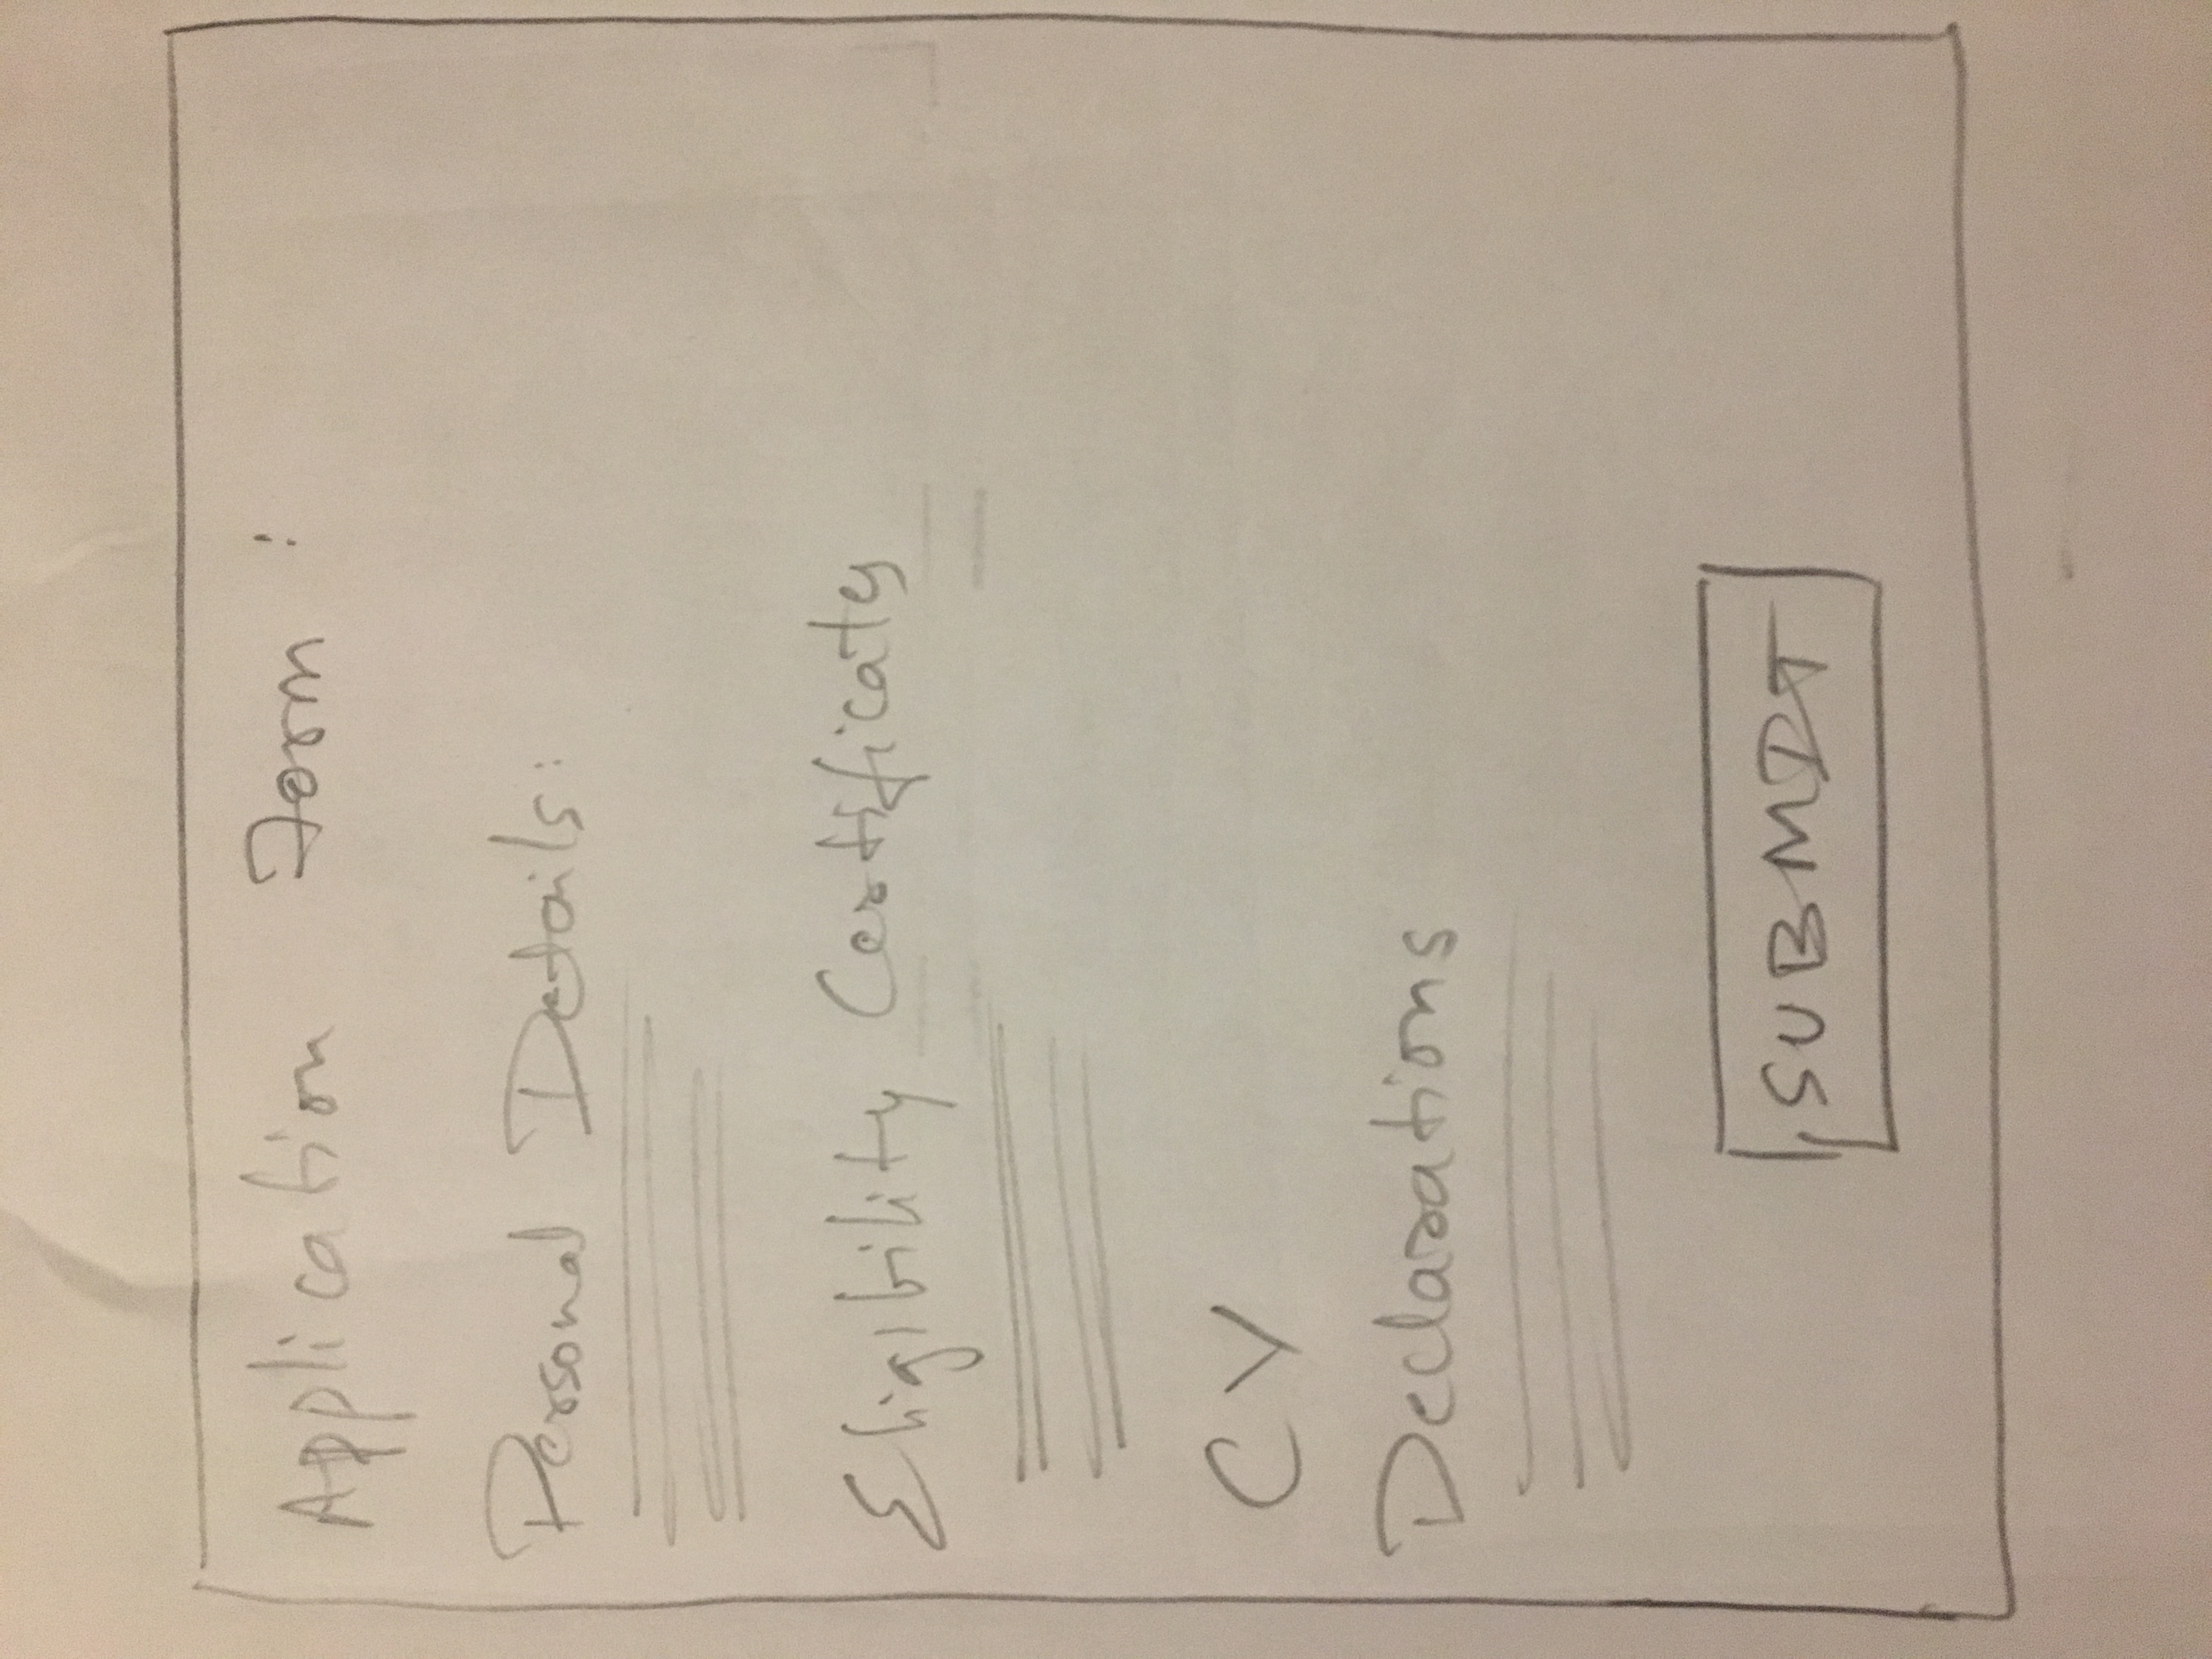 Application Form :
Personal Details:
Eligibility Certificates
CV
Declarations
SUBMIT